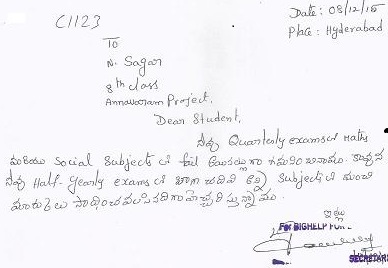 C1123
Date: 08/12/15
Place: Hyderabad
To
N. Sagar
8th class
Annavaram Project.
Dear Student,
నీవు Quarterly exams లో Maths
మరియు Social Subjects లో fail అయినట్లుగా గమనించినాము. కావున
నీవు Half-Yearly exams లో బాగా చదివి అన్ని Subjects లో మంచి
మార్కులు సాధించవలసినదిగా హెచ్చరిస్తున్నాము.
ఇట్లు
For BIGHELP FOR
SECRETARY